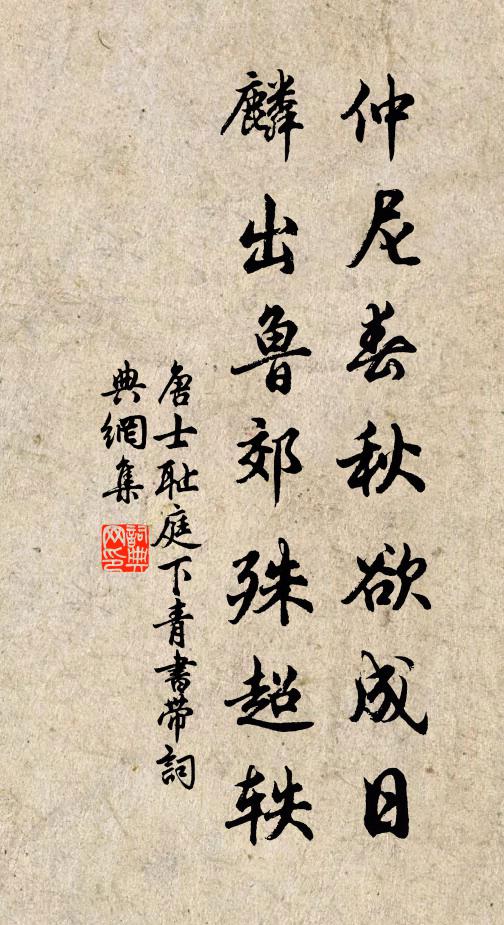 仲尼春秋欲成日
麟出魯郊殊超轶
唐士耻庭下青書带詞
典網集
詞典
网印